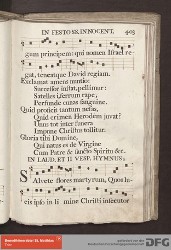 IN FESTO SS. INNOCENT. 403
gum principem: qui nomen Israel re-
gat, teneatque David regiam.
Exclamat amens nuntio:
Successor instat, pellimur:
Satelles i, ferrum rape,
Perfunde cunas sanguine.
Quid proficit tantum nefas,
Quid crimen Herodem juvat?
Unus tot inter funera
Impune Christus tollitur.
Gloria tibi Domine,
Qui natus es de Virgine
Cum Patre & sancto Spiritu &c.
IN LAUD. ET II. VESP. HYMNUS.
SAlvete flores martyrum, Quos lu-
cis ipso in li mine Christi insecutor
DFG